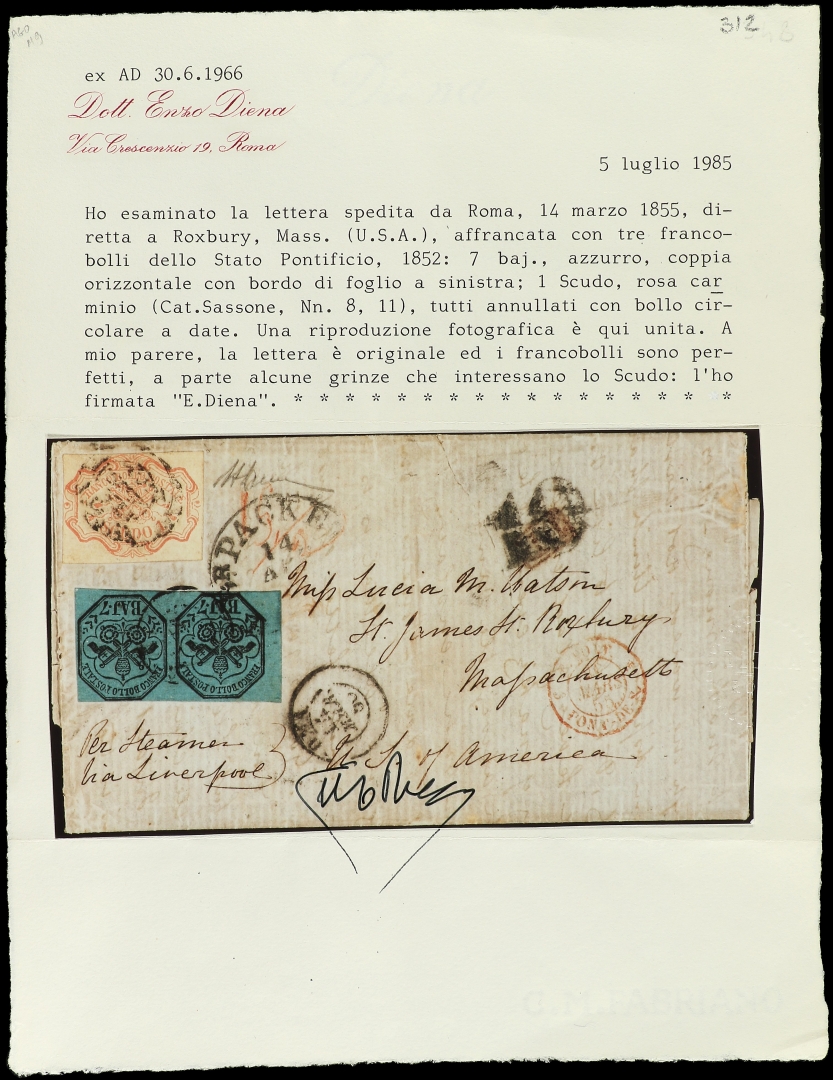 312
ex AD 30.6.1966
Dott. Enzo Diena
Via Crescenzio 19, Roma
5 luglio 1985
Ho esaminato la lettera spedita da Roma, 14 marzo 1855, di-
retta a Roxbury, Mass. (U.S.A.), affrancata con tre franco-
bolli dello Stato Pontificio, 1852: 7 baj., azzurro, coppia
orizzontale con bordo di foglio a sinistra; 1 Scudo, rosa car
minio (Cat.Sassone, Nn. 8, 11), tutti annullati con bollo cir-
colare a date. Una riproduzione fotografica è qui unita. A
mio parere, la lettera è originale ed i francobolli sono per-
fetti, a parte alcune grinze che interessano lo Scudo: l'ho
firmata "E.Diena". * * * * * * * * * * * * * * * * * *
PACKE
14
Miss Lucia M. Watson
St. James St. Roxbury
Massachusetts
U S of America
Per Steamer
Via Liverpool
BAJ.7
BAJ.7
FRANCO BOLLO POSTALE
FRANCO BOLLO POSTALE